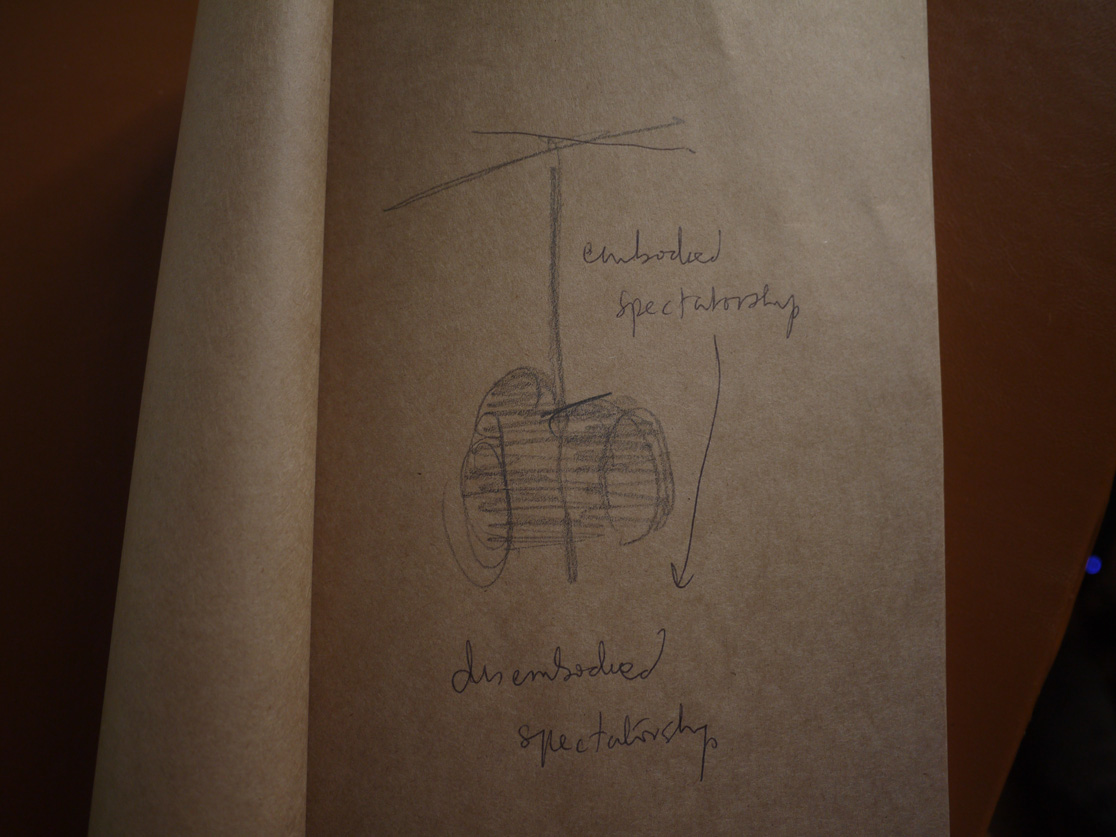 embodied
spectatorship
disembodied
spectatorship